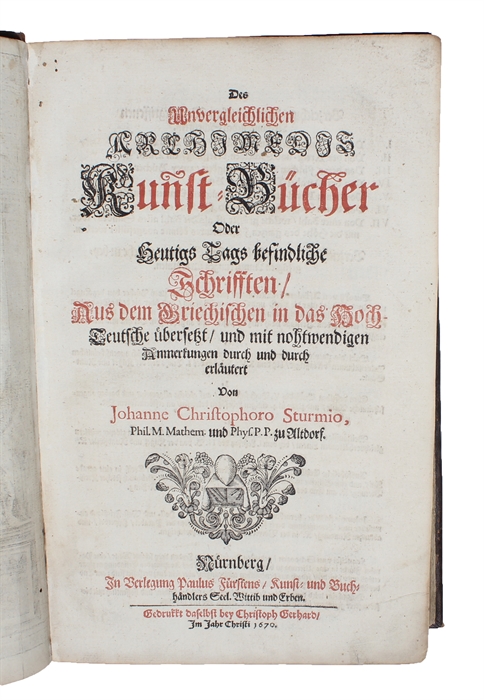 Des
Unvergleichlichen
ARCHIMEDIS
Kunst-Bücher
Oder
Heutigs Tags befindliche
Schrifften/
Aus dem Griechischen in das Hoch-
Teutsche übersetzt/ und mit nohtwendigen
Anmerkungen durch und durch
erläutert
Von
Johanne Christophoro Sturmio,
Phil. M. Mathem. und Phys. P. P. zu Altdorf.
Nürnberg/
In Verlegung Paulus Fürstens/ Kunst- und Buch-
händlers Seel. Wittib und Erben.
Gedrukkt daselbst bey Christoph Gerhard/
Im Jahr Christi 1670.